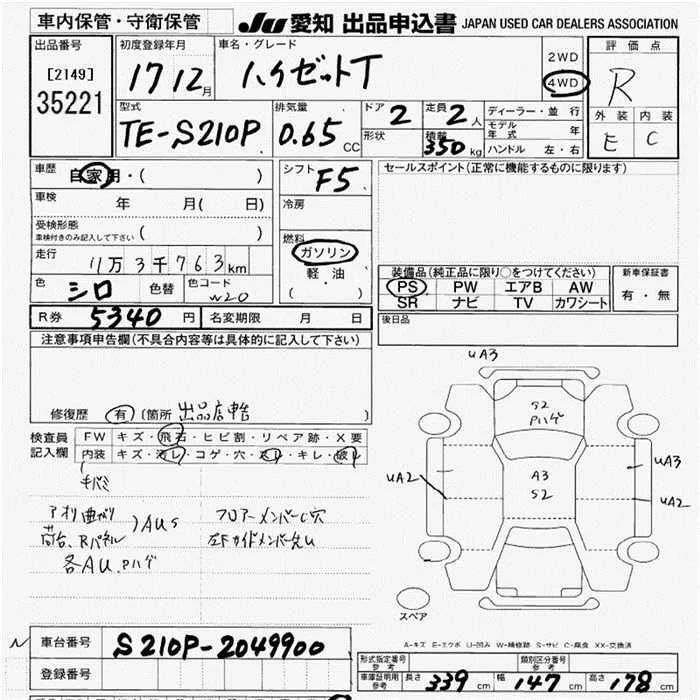 車内保管・守衛保管 JU 愛知 出品申込書 JAPAN USED CAR DEALERS ASSOCIATION
出品番号 初度登録年月 車名・グレード 2WD 評価点
[2149] 17 12月 ハイゼットT 4WD R
35221 型式 排気量 ドア 2 定員 2人 ディーラー・並行 外装 内装
TE-S210P 0.65 CC 形状 積載 350 kg モデル年式 年 E C
ハンドル 左・右
車歴 自家用・( ) シフト F5 セールスポイント(正常に機能するものに限ります)
車検 年 月( 日) 冷房
受検形態
車検付きのみ記入して下さい ( ) 燃料
走行 11万3千763km ガソリン 装備品(純正品に限り○をつけてください) 新車保証書
色 シロ 色替 色コード W20 軽油 PS PW エアB AW 有・無
( ) SR ナビ TV カワシート
R券 5340円 名変期限 月 日 後日品
注意事項申告欄(不具合内容等は具体的に記入して下さい)
修復歴 有 (箇所 出品店申告
検査員 FW キズ・飛石・ヒビ割・リペア跡・X要
記入欄 内装 キズ・汚レ・コゲ・穴・スレ・キレ・破レ
アオリ曲がり
荷台、Rパネル ) AUS
各AU、Pハゲ
フロアーメンバーC穴
UA3
S2
Pハゲ
A3
S2
UA2
UA3
UA2
スペア
A-キズ E-エクボ U-凹み W-補修跡 S-サビ C-腐食 XX-交換済
車台番号 S210P-2049900
登録番号
形式指定番号 参考 類別区分番号 参考
車庫証明用 参考 長さ 339 cm 幅 147 cm 高さ 178 cm